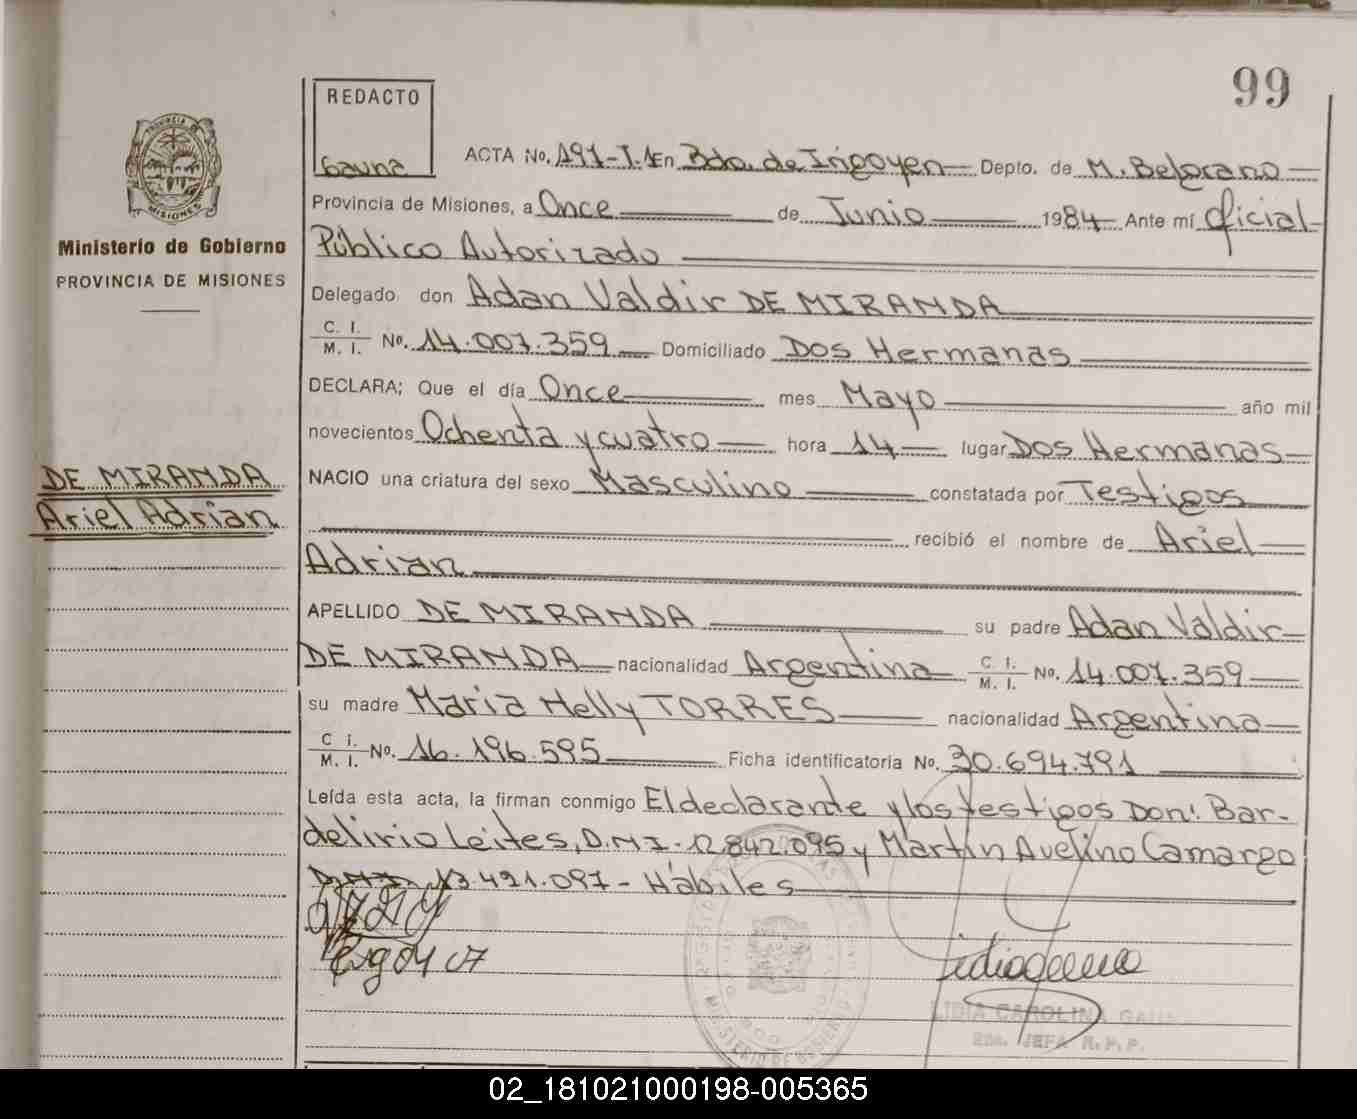 99
REDACTO
Gauna
ACTA No. 191-T.1 En Bdo. de Irigoyen Depto. de M. Belgrano
Provincia de Misiones, a Once de Junio 1984 Ante mí Oficial
Público Autorizado
Ministerio de Gobierno
PROVINCIA DE MISIONES
Delegado don Adan Valdir DE MIRANDA
C. I.
M. I. No. 14.007.359 Domiciliado Dos Hermanas
DECLARA; Que el día Once mes Mayo año mil
novecientos Ochenta y cuatro hora 14 lugar Dos Hermanas
DE MIRANDA
Ariel Adrian
NACIO una criatura del sexo Masculino constatada por Testigos
recibió el nombre de Ariel
Adrian
APELLIDO DE MIRANDA su padre Adan Valdir
DE MIRANDA nacionalidad Argentina C. I. M. I. No. 14.007.359
su madre Maria Nelly TORRES nacionalidad Argentina
C. I.
M. I. No. 16.196.595 Ficha identificatoria No. 30.694.791
Leída esta acta, la firman conmigo El declarante y los testigos Don: Bar-
delirio Leites, D.M.I- 12.842.095 y Martin Avelino Camargo
D.M.I. 13.421.097- Hábiles
LIDIA CAROLINA GAUNA
JEFA R.P.P.
02_181021000198-005365